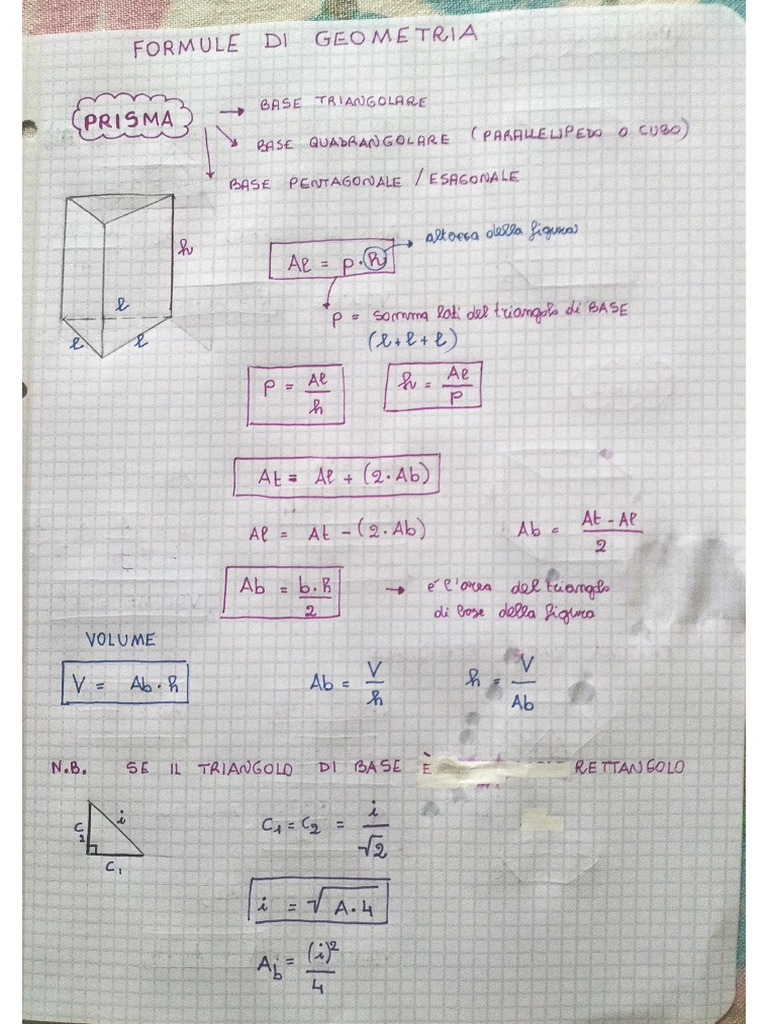 FORMULE DI GEOMETRIA
PRISMA → BASE TRIANGOLARE
BASE QUADRANGOLARE (PARALLELIPEDO O CUBO)
BASE PENTAGONALE / ESAGONALE
h
l
l
l
Al = p · h → altezza della figura
p = somma lati del triangolo di BASE
(l + l + l)
P = Al/h
h = Al/P
At = Al + (2 · Ab)
Al = At - (2 · Ab)
Ab = At - Al/2
Ab = b · h/2 → è l'area del triangolo
di base della figura
VOLUME
V = Ab · h
Ab = V/h
h = V/Ab
N.B. SE IL TRIANGOLO DI BASE È RETTANGOLO
C2
i
C1
C1 = C2 = i/√2
i = √A · 4
Ab = (i)²/4